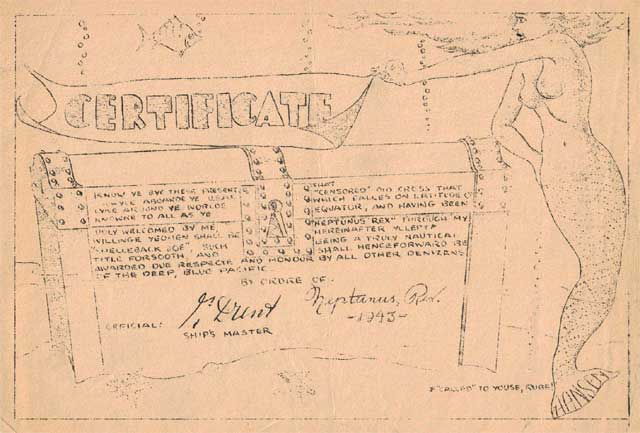 CERTIFICATE
KNOW YE BYE THESE PRESENTS THAT
WHYLE ABOARDE YE "CENSORED" DID CROSS THAT
LYNE AROUND YE WORLDE WHICH FALLES ON LATITUDE 0°
KNOWNE TO ALL AS YE EQUATOR, AND HAVING BEEN
DULY WELCOMED BY ME, "NEPTUNUS REX" THROUGH MY
WILLINGE YEOMEN SHALL BE HEREINAFTER YLLEPT A
"SHELLEBACK JOE" SUCH BEING A TRULY NAUTICAL
TITLE FORSOOTH, AND SHALL HENCEFORWARD BE
AWARDED DUE RESPECTE AND HONOUR BY ALL OTHER DENIZENS
OF THE DEEP, BLUE PACIFIC.
BY ORDRE OF:
Neptunus, Rex.
-1943-
OFFICIAL:
SHIP'S MASTER
"CALLED" TO YOUSE, RUBE!
HANSEN